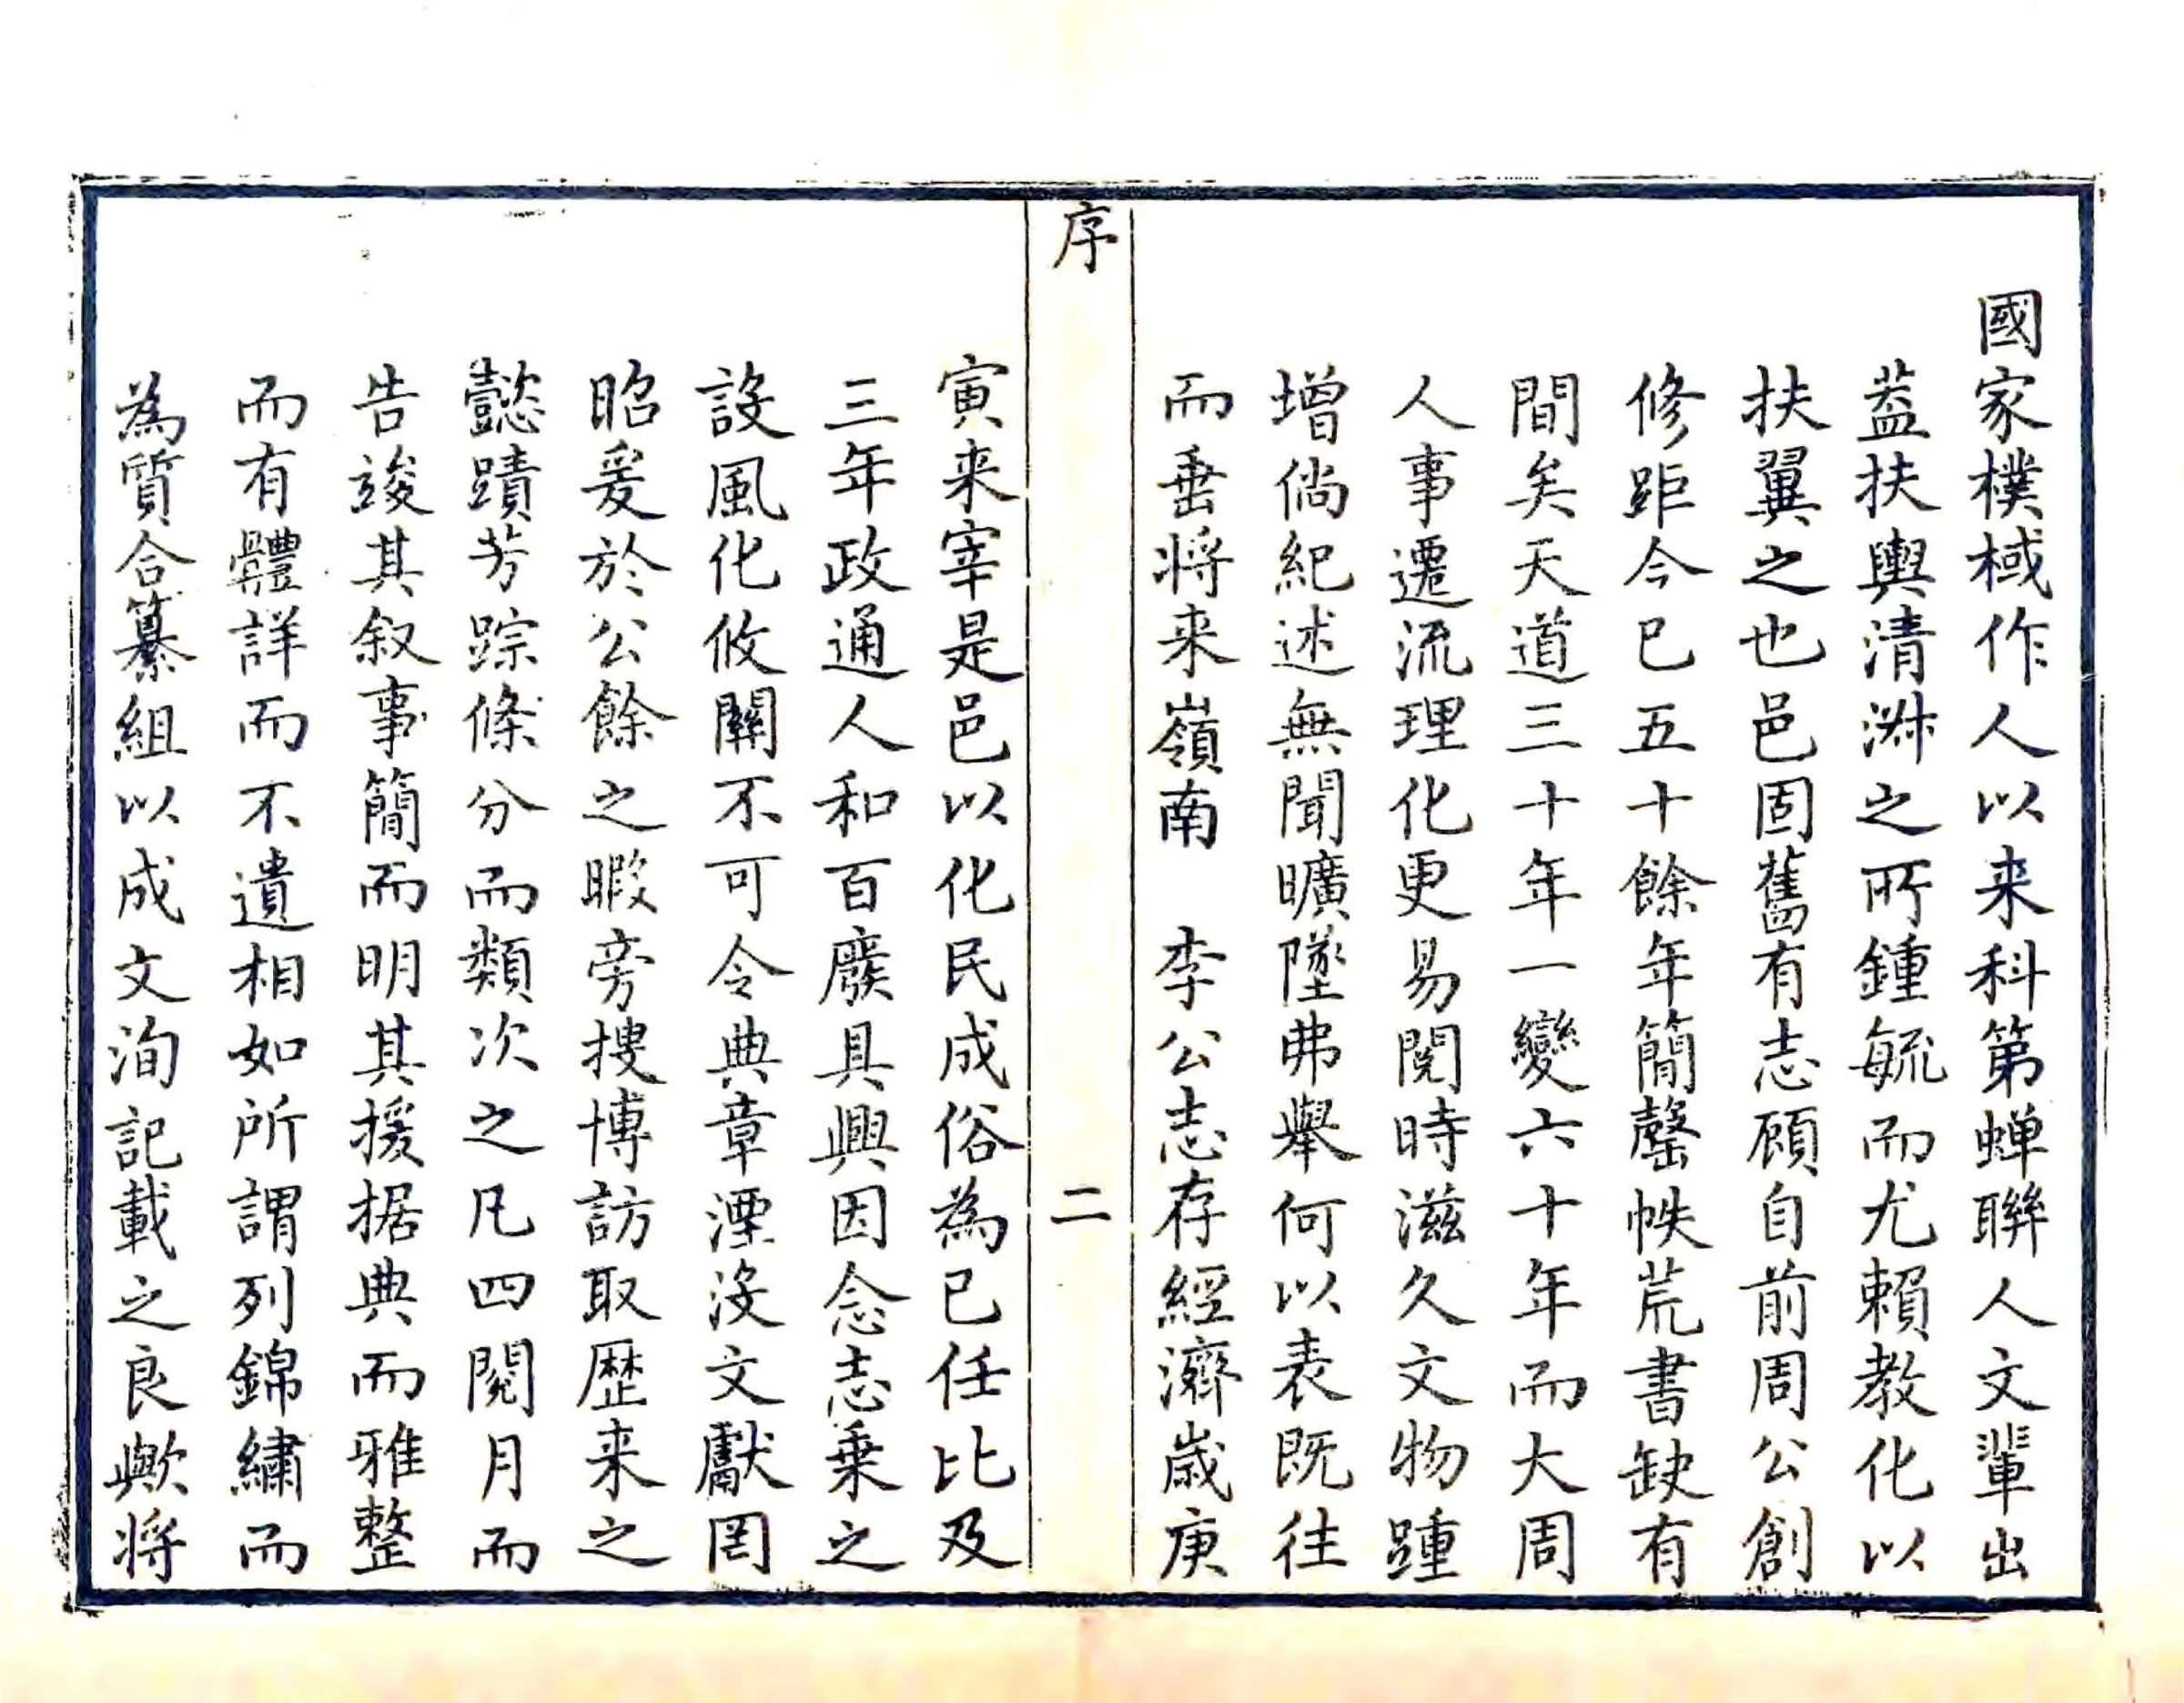 國家樸棫作人以来科第蝉聯人文輩出
葢扶輿清淑之所鍾毓而尤賴教化以
扶翼之也邑固舊有志顾自前周公創
修距今已五十餘年簡罄帙荒書缺有
間矣天道三十年一變六十年而大周
人事遷流理化更易閱時滋久文物踵
增倘紀述無聞曠墜弗舉何以表既往
而垂将来嶺南 李公志存經濟歳庚
序 二
寅来宰是邑以化民成俗為已任比及
三年政通人和百廢具興因念志乗之
設風化攸關不可令典章湮沒文獻罔
昭爰於公餘之暇旁搜博訪取歴来之
懿蹟芳踪條分而類次之凡四閱月而
告竣其叙事簡而明其援据典而雅整
而有體詳而不遺相如所謂列錦繡而
為質合纂組以成文洵記載之良歟将